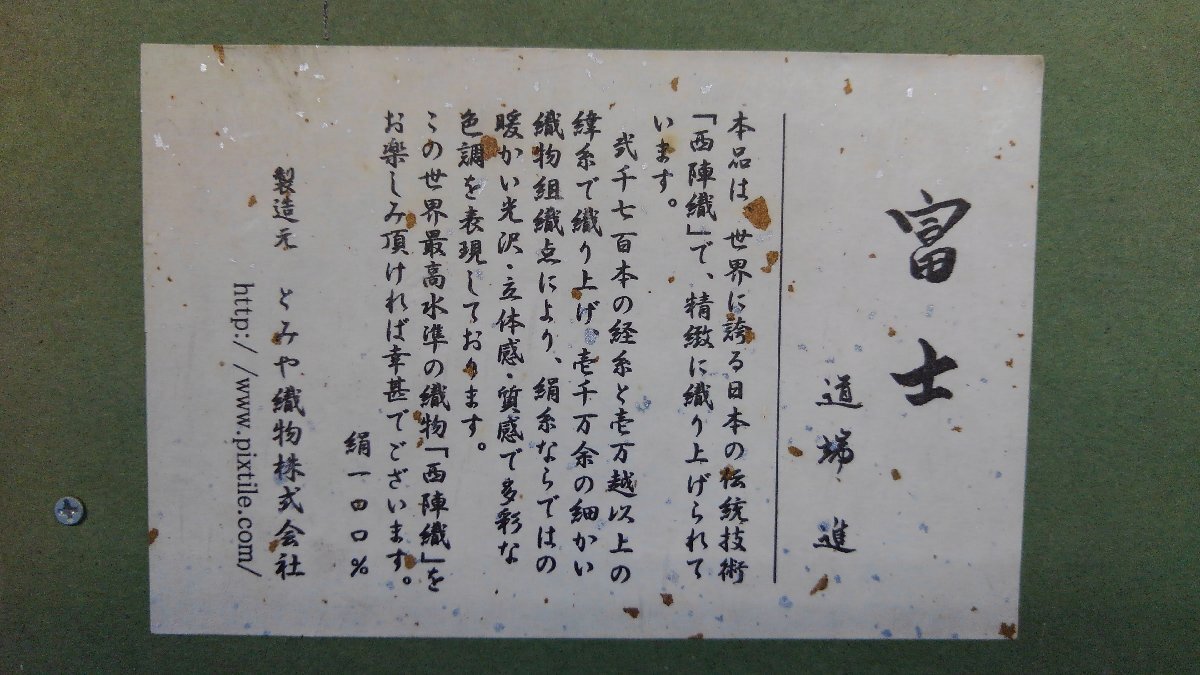 富士
道端 進
本品は、世界に誇る日本の伝統技術
「西陣織」で、精緻に織り上げられて
います。
弐千七百本の経糸と壱万越以上の
緯糸で織り上げ、壱千万余の細かい
織物組織点により、絹糸ならではの
暖かい光沢・立体感・質感で多彩な
色調を表現しております。
この世界最高水準の織物「西陣織」を
お楽しみ頂ければ幸甚でございます。
絹一〇〇%
製造元 とみや織物株式会社
http://www.pixtile.com/